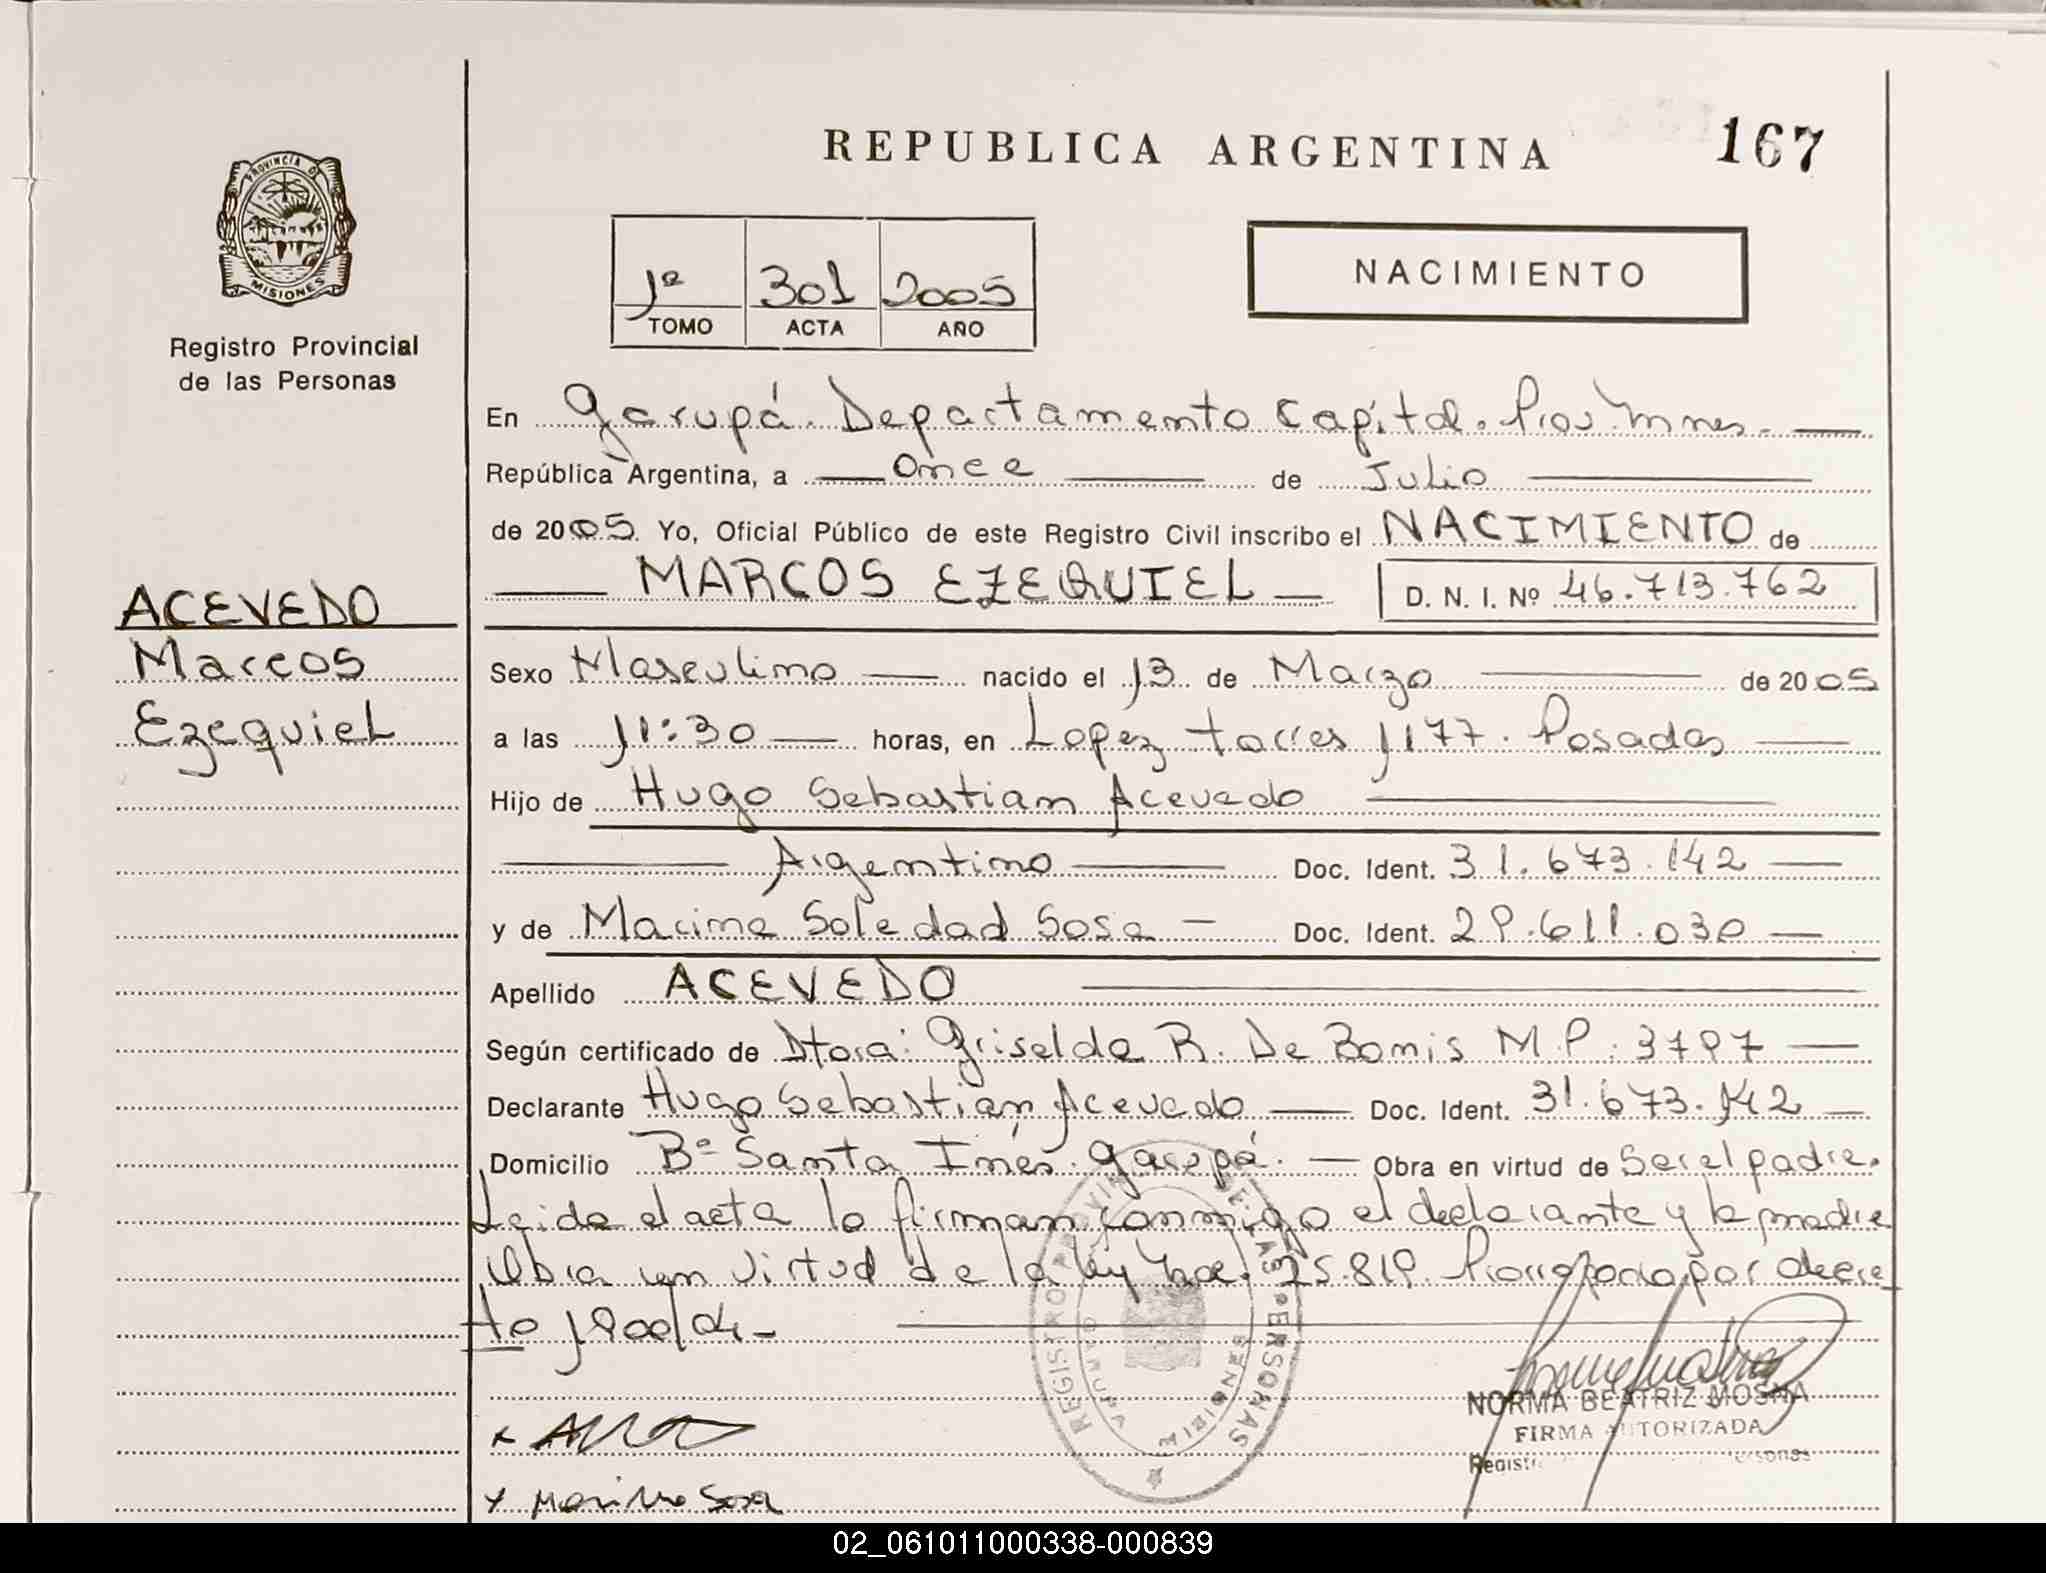 REPUBLICA ARGENTINA
167
PROVINCIA DE
MISIONES
Registro Provincial
de las Personas
1º 301 2005
TOMO ACTA AÑO
NACIMIENTO
En Garupá. Departamento Capital. Prov. Mnes.
República Argentina, a once de Julio
de 2005. Yo, Oficial Público de este Registro Civil inscribo el NACIMIENTO de
MARCOS EZEQUIEL D. N. I. Nº 46.713.762
ACEVEDO
Marcos
Ezequiel
Sexo Masculino nacido el 13 de Marzo de 2005
a las 11:30 horas, en Lopez torres 1177. Posadas
Hijo de Hugo Sebastian Acevedo
Argentino Doc. Ident. 31.673.142
y de Marina Soledad Sosa Doc. Ident. 29.611.030
Apellido ACEVEDO
Según certificado de Dtora: Griselda R. De Bonis M.P. 3797
Declarante Hugo Sebastián Acevedo Doc. Ident. 31.673.142
Domicilio Bº Santa Inés. Garupá. Obra en virtud de Ser el padre.
Leida el acta la firman conmigo el declarante y la madre
Obra en virtud de la ley Nac. 25.819. Prorrogada por decre
to 1900/04
REGISTRO PROVINCIAL DE LAS PERSONAS
GARUPA
MISIONES
NORMA BEATRIZ MOSNA
FIRMA AUTORIZADA
x Marina Sosa
02_061011000338-000839